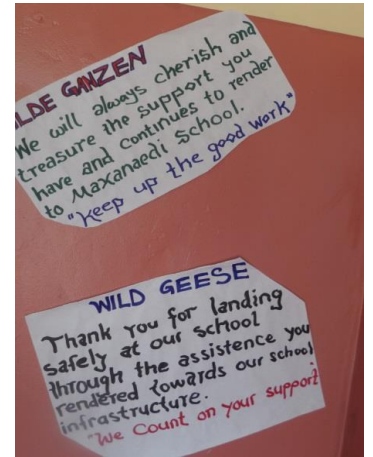 ILDE GANZEN
We will always cherish and
treasure the support you
have and continues to render
to Maxanaedi School.
"Keep up the good work"
WILD GEESE
Thank you for landing
safely at our school
through the assistence you
rendered towards our school
infrastructure.
"We Count on your support